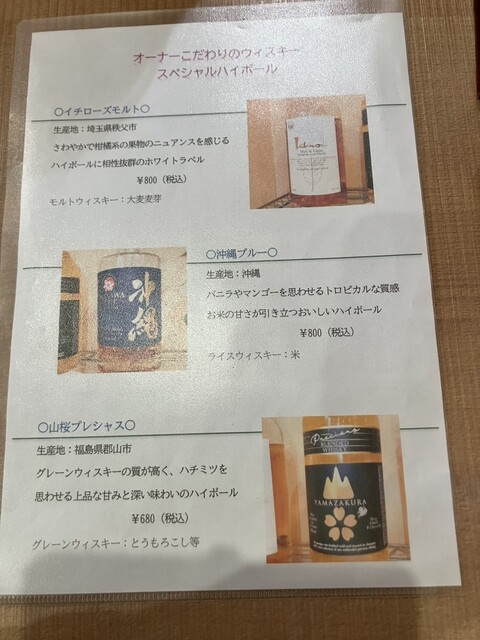 オーナーこだわりのウィスキー
スペシャルハイボール
○イチローズモルト○
生産地：埼玉県秩父市
さわやかで柑橘系の果物のニュアンスを感じる
ハイボールに相性抜群のホワイトラベル
￥800（税込）
モルトウィスキー：大麦麦芽
○沖縄ブルー○
生産地：沖縄
バニラやマンゴーを思わせるトロピカルな質感
お米の甘さが引き立つおいしいハイボール
￥800（税込）
ライスウィスキー：米
沖縄
○山桜プレシャス○
生産地：福島県郡山市
グレーンウィスキーの質が高く、ハチミツを
思わせる上品な甘みと深い味わいのハイボール
￥680（税込）
グレーンウィスキー：とうもろこし等
Precious
BLENDED
WHISKY
YAMAZAKURA